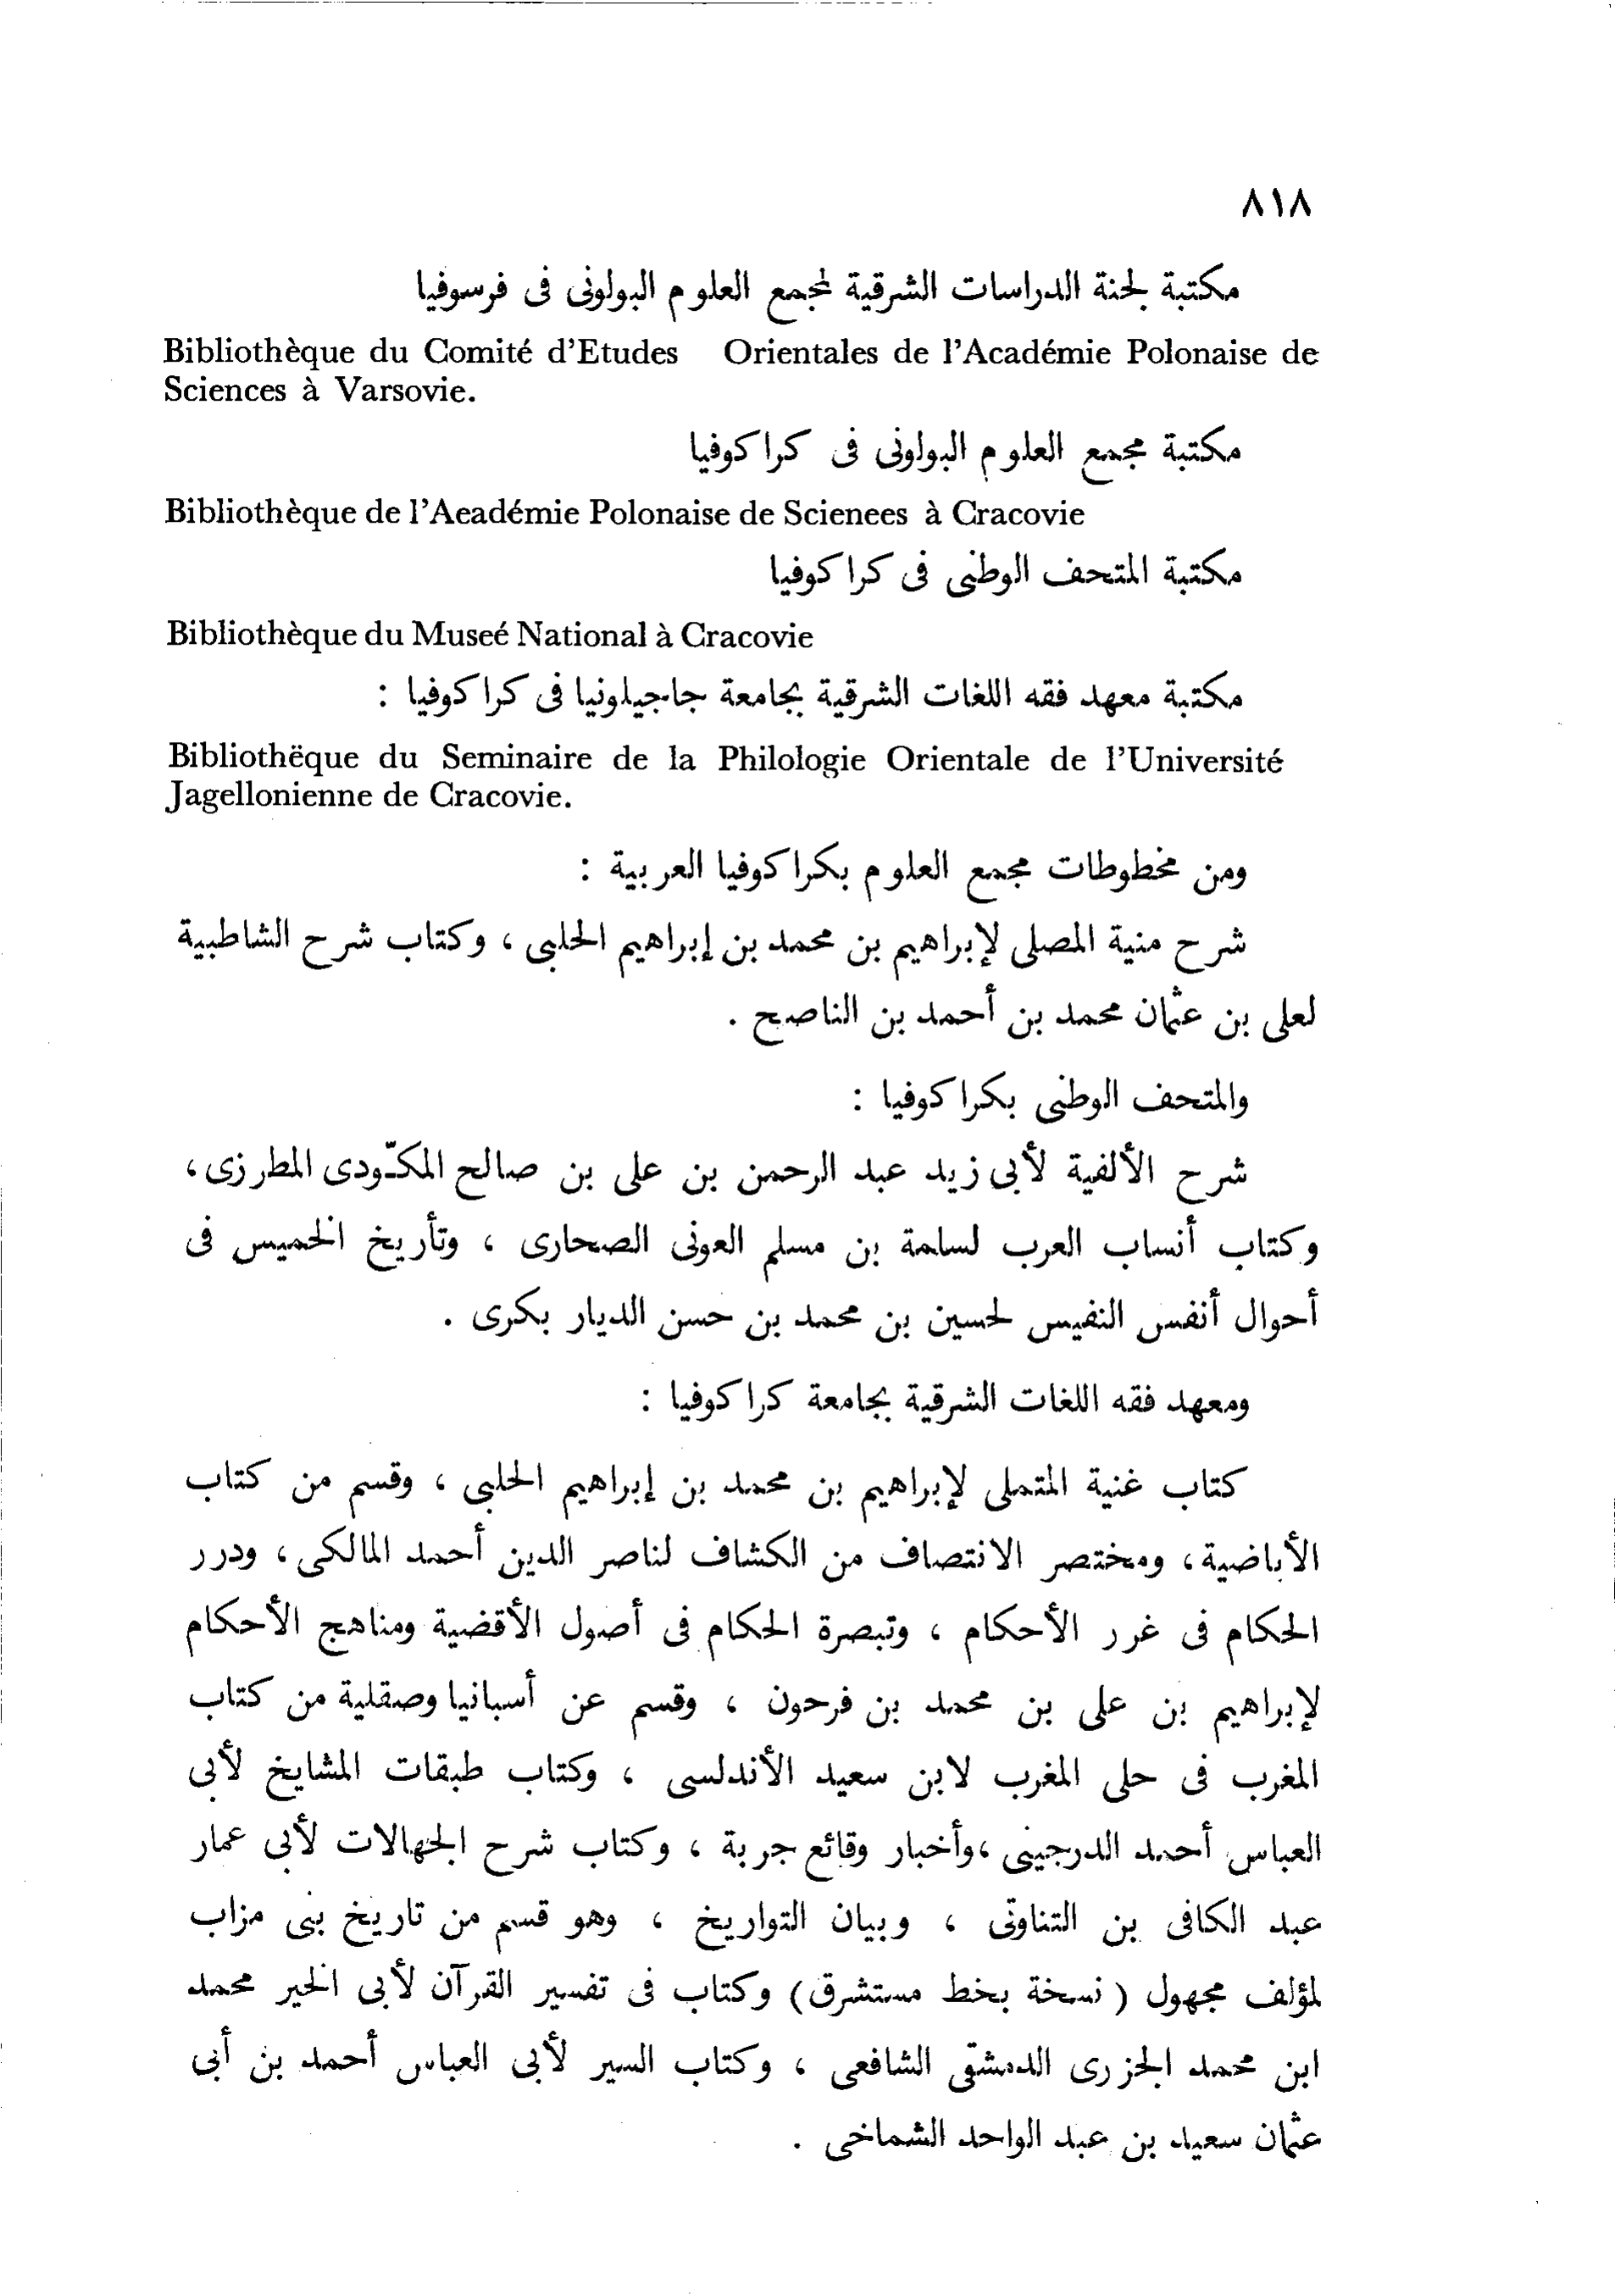 ٨١٨
مكتبة لجنة الدراسات الشرقية لمجمع العلوم البولونى فى فرسوفيا
Bibliothèque du Comité d'Etudes Orientales de l'Académie Polonaise de
Sciences à Varsovie.
مكتبة مجمع العلوم البولونى فى كراكوفيا
Bibliothèque de l'Aeadémie Polonaise de Scienees à Cracovie
مكتبة المتحف الوطنى فى كراكوفيا
Bibliothèque du Museé National à Cracovie
مكتبة معهد فقه اللغات الشرقية بجامعة جاجيلونيا فى كراكوفيا :
Bibliothëque du Seminaire de la Philologie Orientale de l'Université
Jagellonienne de Cracovie.
ومن مخطوطات مجمع العلوم بكراكوفيا العربية :
شرح منية المصلى لإبراهيم بن محمد بن إبراهيم الحلبى ، وكتاب شرح الشاطبية
لعلى بن عثمان محمد بن أحمد بن الناصح .
والمتحف الوطنى بكراكوفيا :
شرح الألفية لأبى زيد عبد الرحمن بن على بن صالح المكّودى المطرزى ،
وكتاب أنساب العرب لسلمة بن مسلم العونى الصحارى ، وتأريخ الخميس فى
أحوال أنفس النفيس لحسين بن محمد بن حسن الديار بكرى .
ومعهد فقه اللغات الشرقية بجامعة كراكوفيا :
كتاب غنية المتملى لإبراهيم بن محمد بن إبراهيم الحلبى ، وقسم من كتاب
الأباضية ، ومختصر الانتصاف من الكشاف لناصر الدين أحمد المالكى ، ودرر
الحكام فى غرر الأحكام ، وتبصرة الحكام فى أصول الأقضية ومناهج الأحكام
لإبراهيم بن على بن محمد بن فرحون ، وقسم عن أسبانيا وصقلية من كتاب
المغرب فى حلى المغرب لابن سعيد الأندلسى ، وكتاب طبقات المشايخ لأبى
العباس أحمد الدرجينى ، وأخبار وقائع جربة ، وكتاب شرح الجهالات لأبى عمار
عبد الكافى بن التناوتى ، وبيان التواريخ ، وهو قسم من تاريخ بنى مزاب
لمؤلف مجهول ( نسخة بخط مستشرق ) وكتاب فى تفسير القرآن لأبى الخير محمد
ابن محمد الجزرى الدمشقى الشافعى ، وكتاب السير لأبى العباس أحمد بن أبى
عثمان سعيد بن عبد الواحد الشماخى .